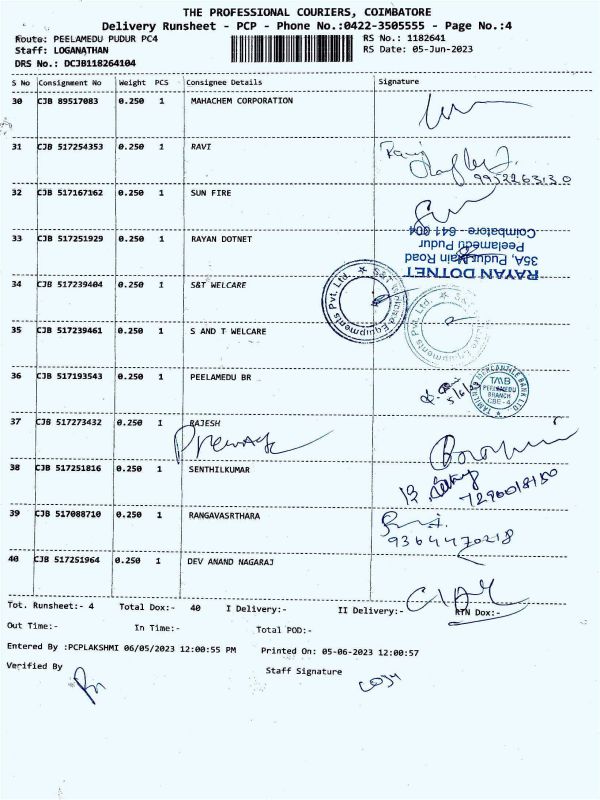 THE PROFESSIONAL COURIERS, COIMBATORE
Delivery Runsheet - PCP - Phone No.:0422-3505555 - Page No.:4
Route: PEELAMEDU PUDUR PC4
RS No.: 1182641
Staff: LOGANATHAN
RS Date: 05-Jun-2023
DRS No.: DCJB118264104
S No Consignment No Weight PCS Consignee Details Signature
30 CJB 89517083 0.250 1 MAHACHEM CORPORATION
31 CJB 517254353 0.250 1 RAVI
Ravi
9952263130
32 CJB 517167162 0.250 1 SUN FIRE
33 CJB 517251929 0.250 1 RAYAN DOTNET
RAYAN DOTNET
35A, Pudur Main Road
Peelamedu Pudur
Coimbatore - 641 004
34 CJB 517239404 0.250 1 S&T WELCARE
S&T Welcare Equipments Pvt. Ltd.
35 CJB 517239461 0.250 1 S AND T WELCARE
S&T Welcare Equipments Pvt. Ltd.
36 CJB 517193543 0.250 1 PEELAMEDU BR
5/6/23
TAMILNAD MERCANTILE BANK LTD.
TMB
PEELAMEDU
BRANCH
CBE - 4
37 CJB 517273432 0.250 1 RAJESH
38 CJB 517251816 0.250 1 SENTHILKUMAR
39 CJB 517088710 0.250 1 RANGAVASRTHARA
9364470218
40 CJB 517251964 0.250 1 DEV ANAND NAGARAJ
Tot. Runsheet:- 4 Total Dox:- 40 I Delivery:- II Delivery:- RTN Dox:-
Out Time:- In Time:- Total POD:-
Entered By :PCPLAKSHMI 06/05/2023 12:00:55 PM Printed On: 05-06-2023 12:00:57
Verified By Staff Signature